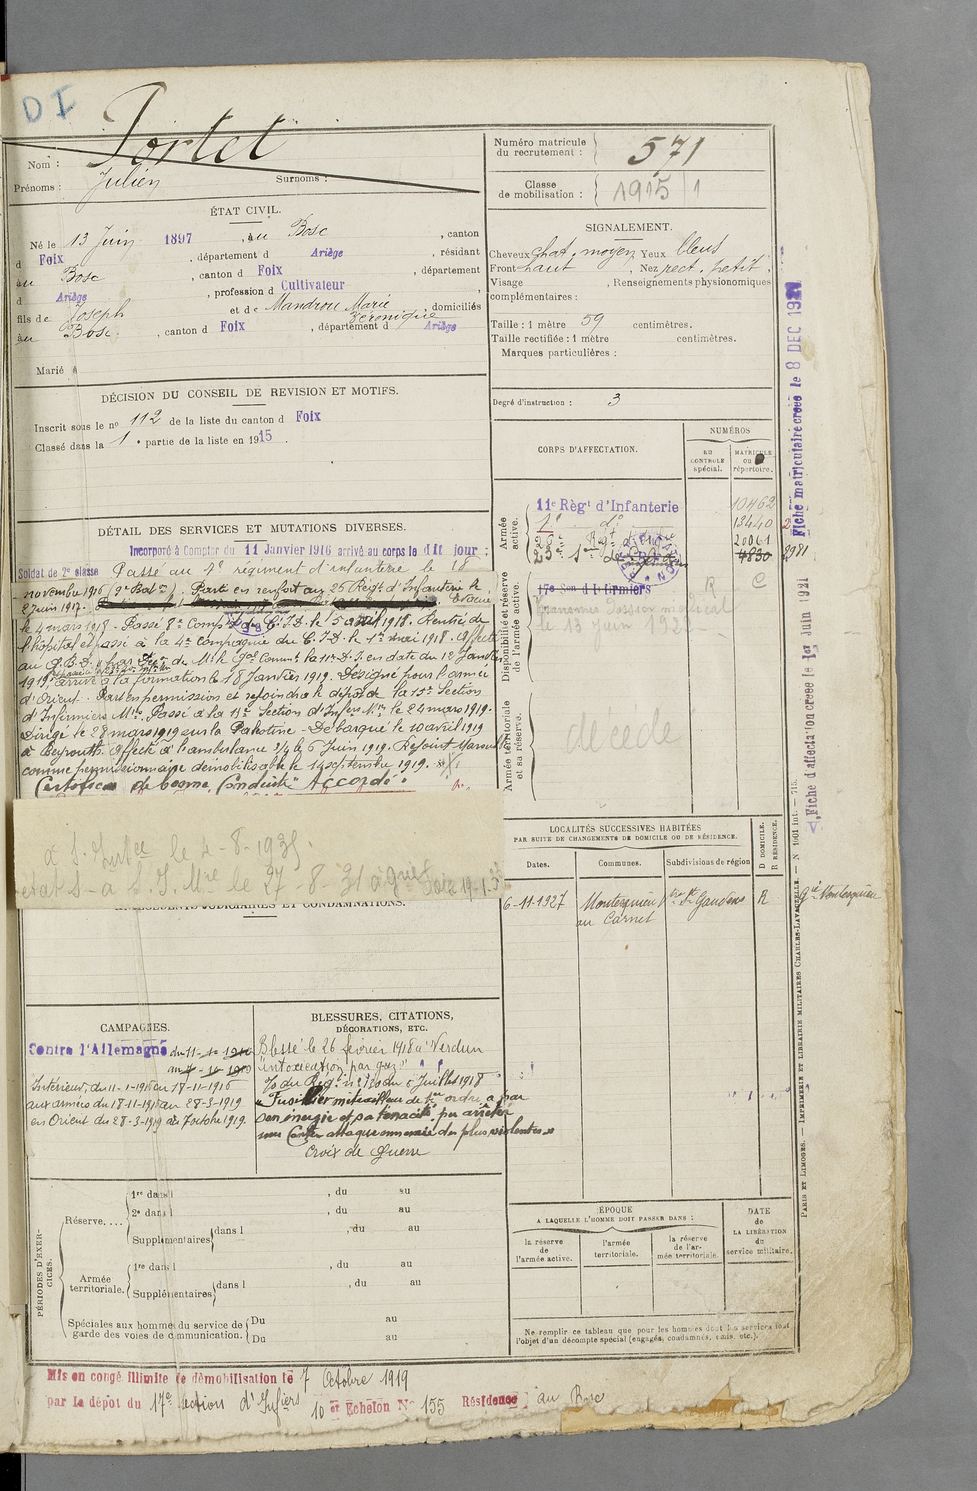 D I
Portet
Nom :
Prénoms : Julien Surnoms :
Numéro matricule du recrutement : 571
Classe de mobilisation : 1915 / 1
ÉTAT CIVIL.
Né le 13 Juin 1897, au Bosc, canton
d Foix, département d Ariège, résidant
au Bosc, canton d Foix, département
d Ariège, profession d Cultivateur
fils de Joseph et de Mandrou Marie Veronique, domiciliés
au Bosc, canton d Foix, département d Ariège
Marié à
DÉCISION DU CONSEIL DE REVISION ET MOTIFS.
Inscrit sous le no 112 de la liste du canton d Foix
Classé dans la 1e partie de la liste en 1915.
SIGNALEMENT.
Cheveux chat. moyen Yeux bleus
Front haut, Nez rect. petit.
Visage , Renseignements physionomiques
complémentaires :
Taille : 1 mètre 59 centimètres.
Taille rectifiée : 1 mètre centimètres.
Marques particulières :
Degré d'instruction : 3
DÉTAIL DES SERVICES ET MUTATIONS DIVERSES.
Incorporé à Compter du 11 Janvier 1916 arrivé au corps le dit jour :
Soldat de 2e classe Passé au 9e régiment d'infanterie le 18
novembre 1916 (9e Baton) Parti en renfort au 25 Régt d'Infanterie le
2 juin 1917. Évacué
le 4 mars 1918. Passé 8e Compie du C.I.D. le 5 avril 1918. Rentré de
l'hôpital et passé à la 4e Compagnie du C.I.D. le 1er mai 1918. Affecté
au G.B.D. de Mr le Gal Commt la 11e D.I. en date du 12 Janvier
1919 arrivé à la formation le 18 Janvier 1919. Désigné pour l'armée
d'Orient. Part en permission et rejoindra le dépôt de la 15e Section
d'Infirmiers Mres. Passé à la 15e Section d'Infers Mres le 24 mars 1919.
Dirigé le 28 mars 1919 sur la Palestine - Débarqué le 10 avril 1919
à Beyrouth. Affecté à l'ambulance 3/4 le 6 Juin 1919. Rejoint Marseille
comme permissionnaire démobilisable le 14 septembre 1919.
Certificat de bonne Conduite "Accordé".
le 4-8-1935
le 27-8-31
ANTÉCÉDENTS JUDICIAIRES ET CONDAMNATIONS.
CORPS D'AFFECTATION.
NUMÉROS
AU CONTRÔLE spécial.
MATRICULE OU répertoire.
Armée active.
11e Régt d'Infanterie 10462
9e do 13440
20061
4830
2981
Disponibilité et réserve de l'armée active.
17e Son d'Infirmiers R C
dossier médical
le 13 juin 1922
Armée territoriale et sa réserve.
décédé
LOCALITÉS SUCCESSIVES HABITÉES
PAR SUITE DE CHANGEMENTS DE DOMICILE OU DE RÉSIDENCE.
Dates. Communes. Subdivisions de région D DOMICILE. R RÉSIDENCE.
6-11-1927 Montesquieu St Gaudens R
CAMPAGNES.
Contre l'Allemagne du 11-1-1916
Intérieur, du 11-1-1916 au 17-11-1916
aux armées du 18-11-1916 au 28-3-1919
en Orient du 28-3-1919 au 7 octobre 1919.
BLESSURES, CITATIONS,
DÉCORATIONS, ETC.
Blessé le 26 février 1918 à Verdun
"intoxication par gaz"
O du Régt no 120 du 5 Juillet 1918
"Fusilier mitrailleur de 1er ordre, a par
son énergie et sa ténacité, pu arrêter
une Contre attaque ennemie des plus violentes"
Croix de Guerre
PÉRIODES D'EXERCICES.
Réserve....
1re dans l , du au
2e dans l , du au
Supplémentaires dans l , du au
Armée territoriale.
1re dans l , du au
Supplémentaires dans l , du au
Spéciales aux hommes du service de garde des voies de communication.
Du au
Du au
ÉPOQUE
A LAQUELLE L'HOMME DOIT PASSER DANS :
la réserve de l'armée active.
l'armée territoriale.
la réserve de l'armée territoriale.
DATE de LA LIBÉRATION du service militaire.
Ne remplir ce tableau que pour les hommes dont les services font
l'objet d'un décompte spécial (engagés, condamnés, omis, etc.).
Mis en congé illimité de démobilisation le 7 Octobre 1919
par le dépôt du 17e section d'Infiers 10 et Échelon No 155 Résidence au Bosc
Fiche matriculaire créée le 8 DEC
Fiche d'affectation créée le 1er Juin 1921
PARIS ET LIMOGES. — IMPRIMERIE ET LIBRAIRIE MILITAIRES CHARLES-LAVAUZELLE. — N° 1001 int. — 715.